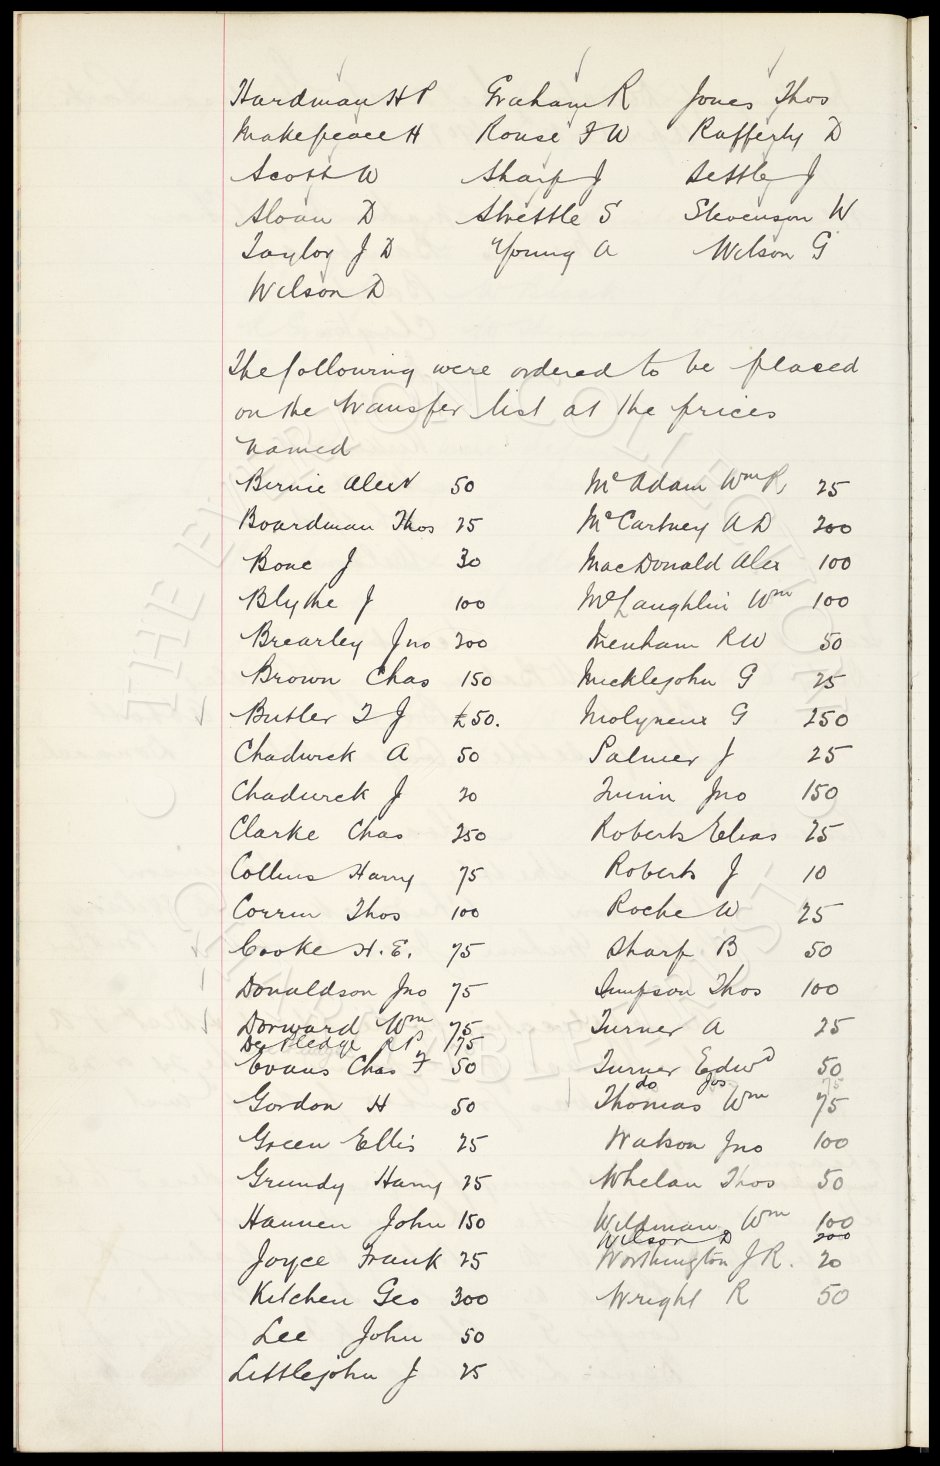 Hardman H P Graham R Jones Thos
Makepeace H Rouse F W Rafferty D
Scott W Sharp J Settle J
Sloan D Strettle S Stevenson W
Taylor J D Young A Wilson G
Wilson D
The following were ordered to be placed
on the transfer list at the prices
named
Birnie Alex 50 McAdam Wm R, 25
Boardman Thos 25 McCartney A D 200
Bone J 30 MacDonald Alex 100
Blythe J 100 McLaughlin Wm 100
Brearley Jno 200 Menham R W 50
Brown Chas 150 Micklejohn G 25
Butler T J £50. Molyneux G 250
Chadwick A 50 Palmer J 25
Chadwick J 20 Quinn Jno 150
Clarke Chas 250 Roberts Elias 25
Collins Harry 75 Roberts J 10
Corrin Thos 100 Roche W 25
Cooke H. E. 75 Sharp B 50
Donaldson Jno 75 Simpson Thos 100
Dorward Wm 75 Turner A 25
R P 75
Evans Chas F 50 Turner Edwd 50
do Jos 75
Gordon H 50 Thomas Wm 75
Green Ellis 25 Watson Jno 100
Grundy Harry 25 Whelan Thos 50
Hannen John 150 Wildman Wm 100
Wilson D 200
Joyce Frank 25 Worthington J R. 20
Kitchen Geo 300 Wright R 50
Lee John 50
Littlejohn J 25
THE EVERTON COLLECTION